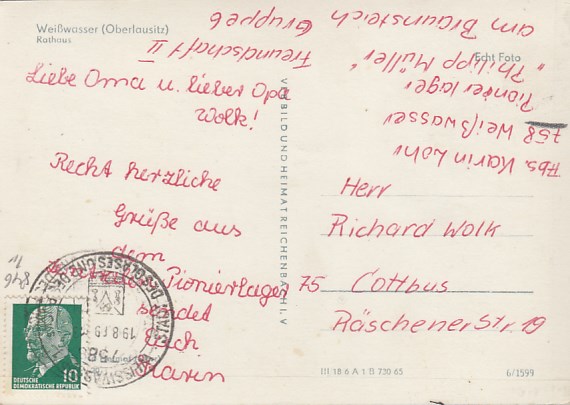 Weißwasser (Oberlausitz)
Rathaus
Echt Foto
Liebe Oma u. lieber Opa
Wolk!
Recht herzliche
Grüße aus
dem
Pionierlager
sendet
Euch
Karin
Abs. Karin Lohr
758 Weißwasser
Pionierlager
"Philipp Müller"
am Braunsteich
Freundschaft II
Gruppe 6
VEB BILD UND HEIMAT REICHENBACH I. V
Herr
Richard Wolk
75 Cottbus
Räschener Str. 19
DEUTSCHE
DEMOKRATISCHE REPUBLIK
10
19.8.69
758
III 18 6 A 1 B 730 65
6/1599